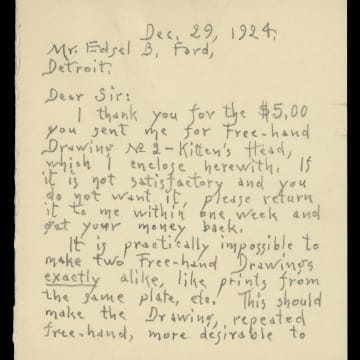 Dec. 29, 1924.
Mr. Edsel B. Ford,
Detroit.
Dear Sir:
I thank you for the $5.00
you sent me for Free-hand
Drawing No 2 - Kitten's Head,
which I enclose herewith. If
it is not satisfactory and you
do not want it, please return
it to me within one week and
get your money back.
It is practically impossible to
make two Free-hand Drawings
exactly alike, like prints from
the same plate, etc. This should
make the Drawing, repeated
free-hand, more desirable to